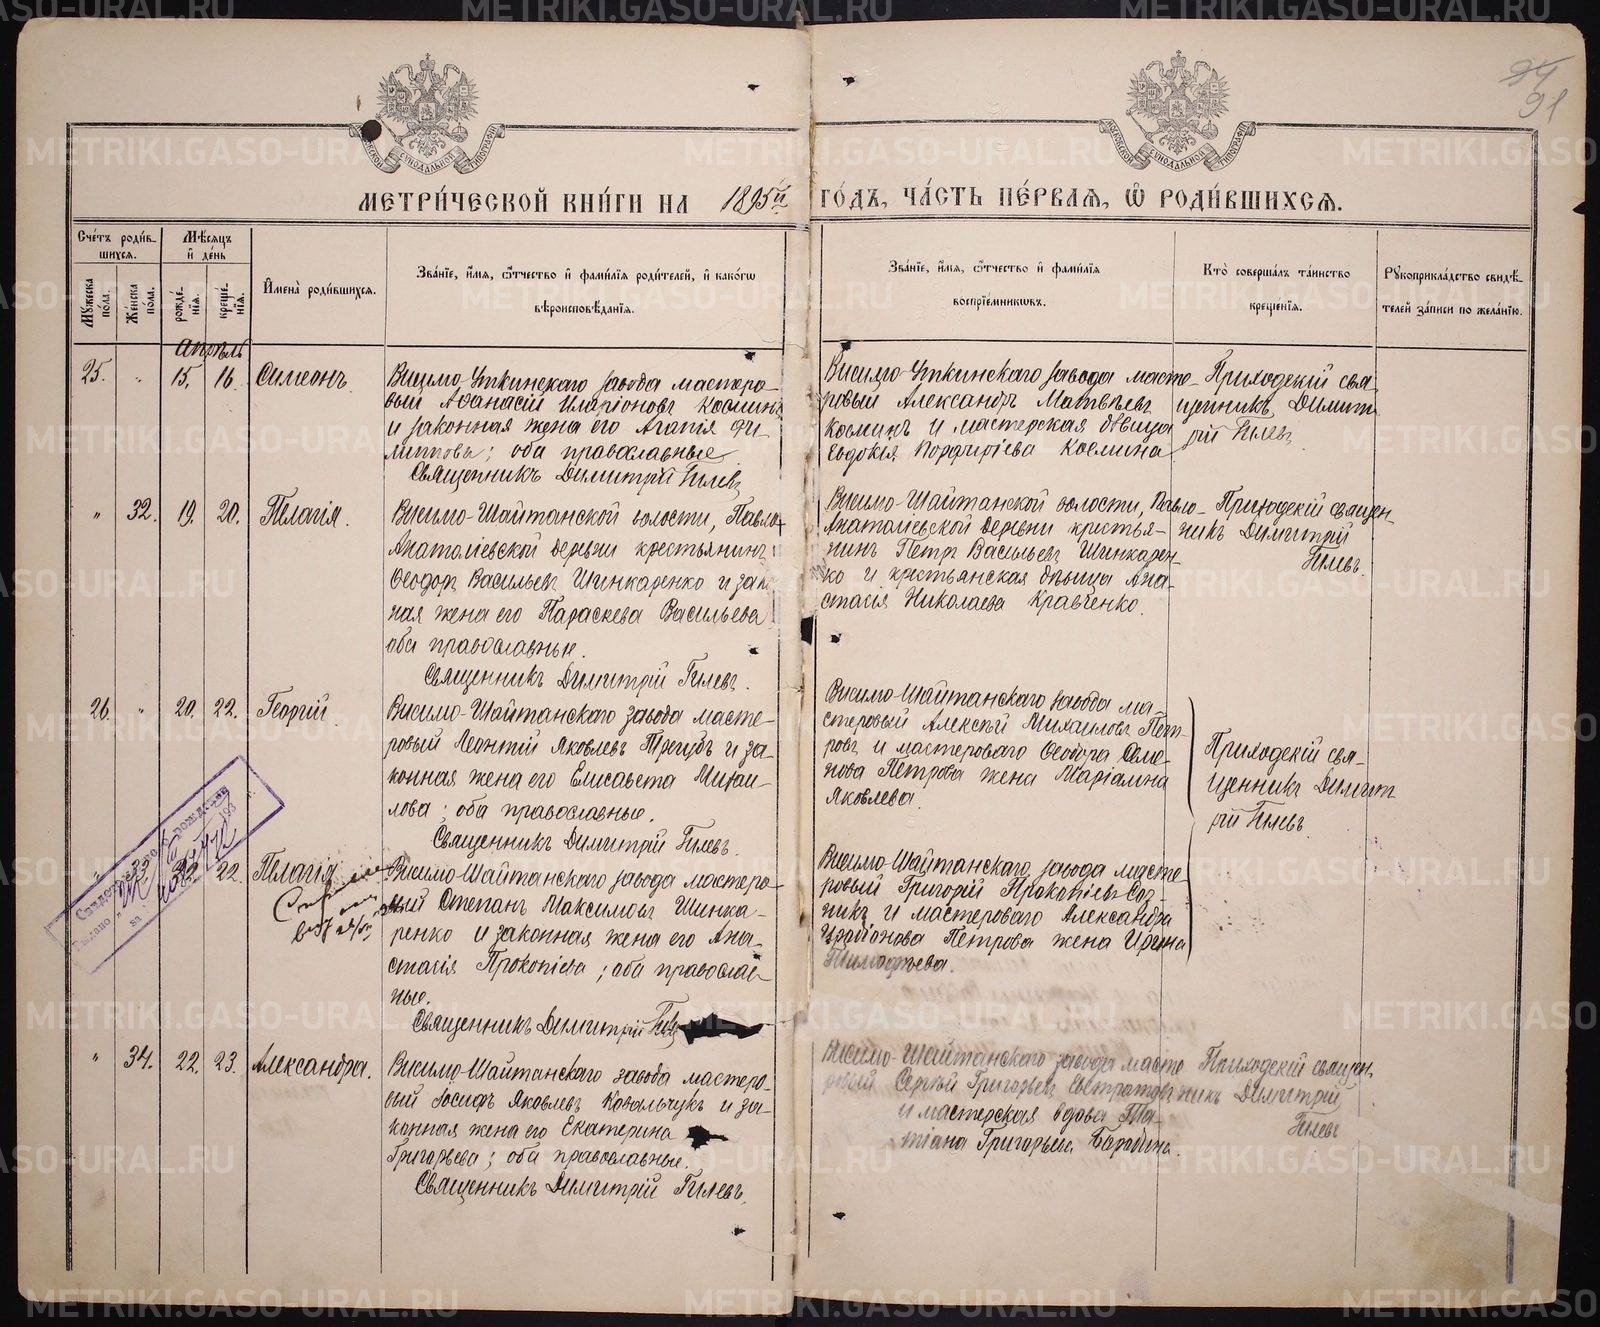 94
91
МЕТРИ́ЧЕСКОЙ КНИ́ГИ НА 1895й ГО́ДЪ, ЧА́СТЬ ПЕ́РВАЯ, Ѡ҆ РОДИ́ВШИХСѦ.
Сче́тъ роди́в-
шихсѧ.
Мꙋ́жеска по́ла.
Же́нска по́ла.
Мѣ́сѧцъ
и҆ де́нь
рожде́нїѧ.
креще́нїѧ.
И҆мена̀ роди́вшихсѧ.
Зва́нїе, и҆́мѧ, ѻ҆́тчество и҆ фами́лїѧ роди́телей, и҆ како́гѡ
вѣроисповѣ́данїѧ.
Зва́нїе, и҆́мѧ, ѻ҆́тчество и҆ фами́лїѧ
воспрїе́мникѡвъ.
Кто̀ соверша́лъ та́инство
креще́нїѧ.
Рꙋкоприкла́дство свидѣ́-
телей за́писи по жела́нїю.
апрѣль
25. „ 15. 16. Симеонъ.
Висимо-Уткинскаго завода мастеро-
вый Аѳанасій Иларіоновъ Косминъ
и законная жена его Агапія Фи-
липпова; оба православные
Священникъ Димитрій Гилевъ
Висимо-Уткинскаго завода масте-
ровый Александръ Матвѣевъ
Косминъ и мастерская дѣвица
Евдокія Порфиріева Космина
Приходскій свя-
щенникъ Димит
рій Гилевъ
„ 32. 19. 20. Пелагія.
Висимо-Шайтанской волости, Павло-
Анатоліевской деревни крестьянинъ
Ѳеодоръ Васильевъ Шинкаренко и закон
ная жена его Параскева Васильева
оба православные.
Священникъ Димитрій Гилевъ.
Висимо-Шайтанской волости, Павло-
Анатоліевской деревни крестья-
нинъ Петръ Васильевъ Шинкарен-
ко и крестьянская дѣвица Ана-
стасія Николаева Кравченко.
Приходскій священ-
никъ Димитрій
Гилевъ.
26. „ 20. 22. Георгій.
Висимо-Шайтанскаго завода масте-
ровый Леонтій Яковлевъ Трегубъ и за-
конная жена его Елисавета Михаи-
лова; оба православные.
Священникъ Димитрій Гилевъ.
Висимо-Шайтанскаго завода ма-
стеровый Алексѣй Михаиловъ Пет-
ровъ и мастероваго Ѳеодора Семе-
нова Петрова жена Маріамна
Яковлева.
Приходскій свя-
щенникъ Димит
рій Гилевъ
33 22. Пелагія
Свидѣтельство о рождении
Висимо-Шайтанскаго завода мастеро-
вый Степанъ Максимовъ Шинка-
ренко и законная жена его Ана-
стасія Прокопіева; оба православ-
ные.
Священникъ Димитрій Гилевъ
Висимо-Шайтанскаго завода масте-
ровый Григорій Прокопіевъ
и мастероваго Александра
Иларіонова Петрова жена Ирина
Тимоѳѣева.
„ 34. 22. 23. Александра.
Висимо-Шайтанскаго завода мастеро-
вый Іосифъ Яковлевъ Ковальчукъ и за-
конная жена его Екатерина
Григорьева; оба православные.
Священникъ Димитрій Гилевъ.
Висимо-Шайтанскаго завода масте
ровый Сергѣй Григорьевъ
и мастерская вдова Та-
тіана Григорьева
Приходскій священ-
никъ Димитрій
Гилевъ
METRIKI.GASO-URAL.RU